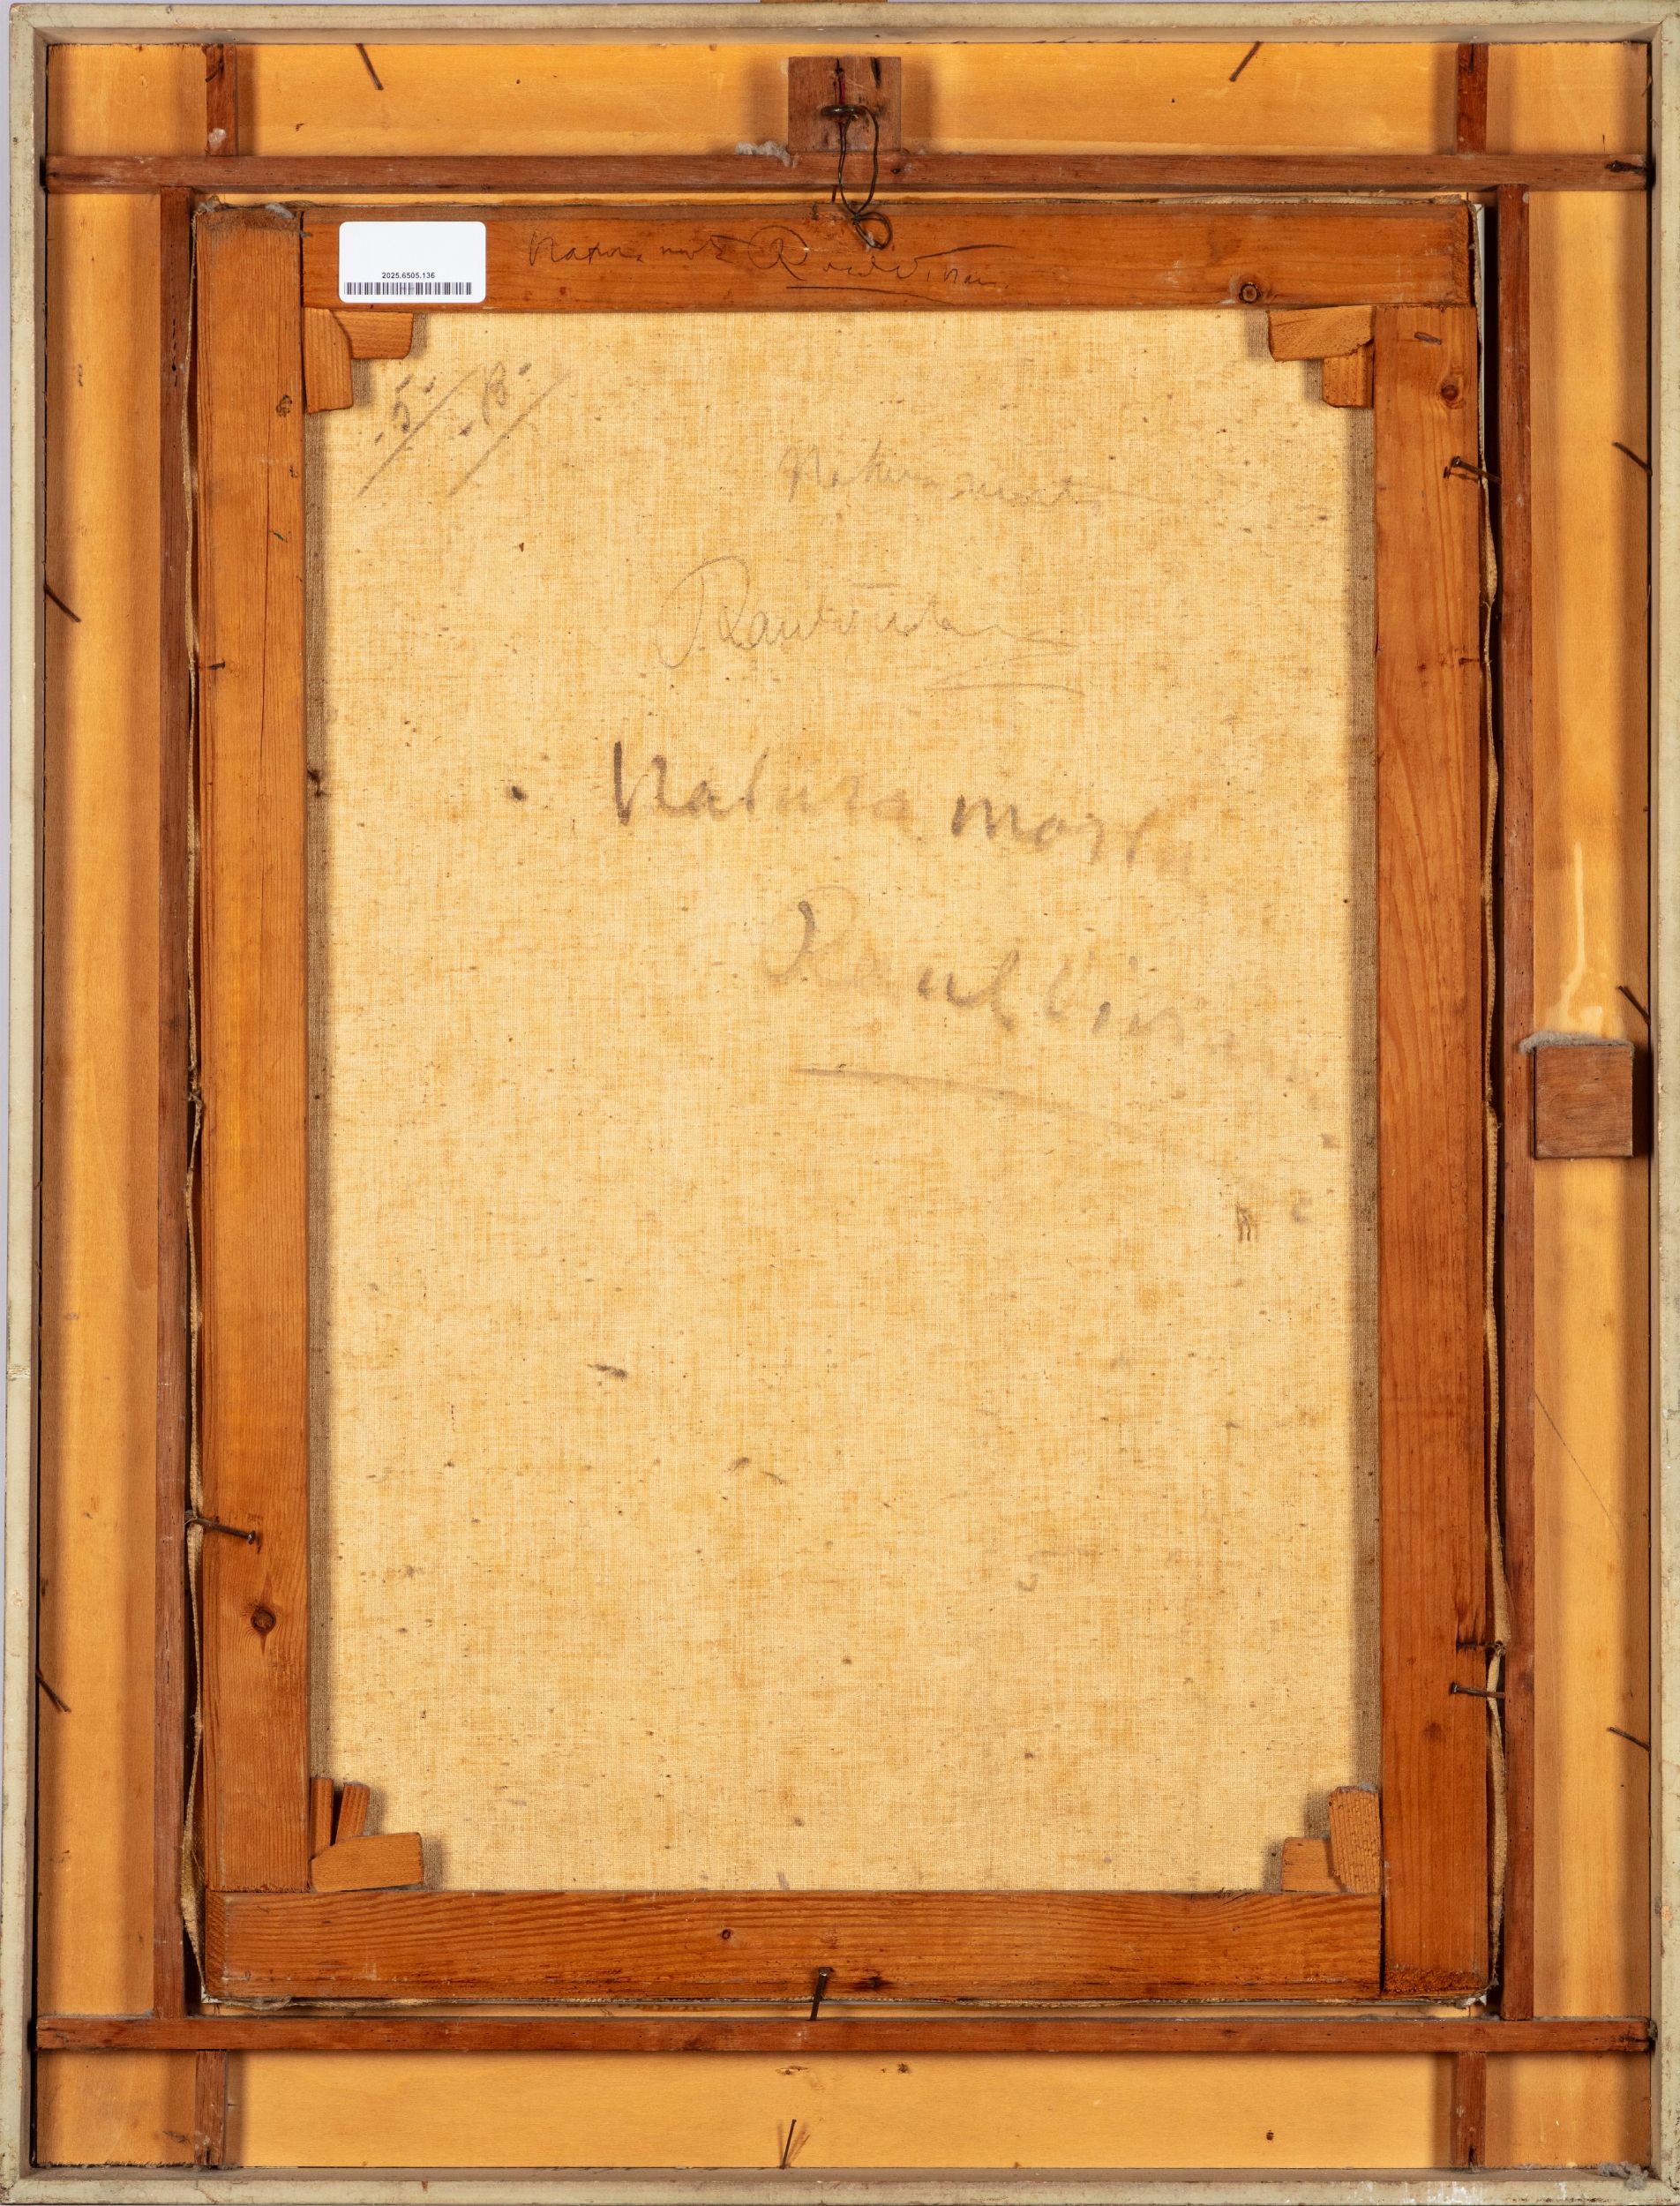 2025.6505.136
Natura morta Raul Viviani
5 B
Natura morta
Raul Viviani
Natura morta
Raul Vivi